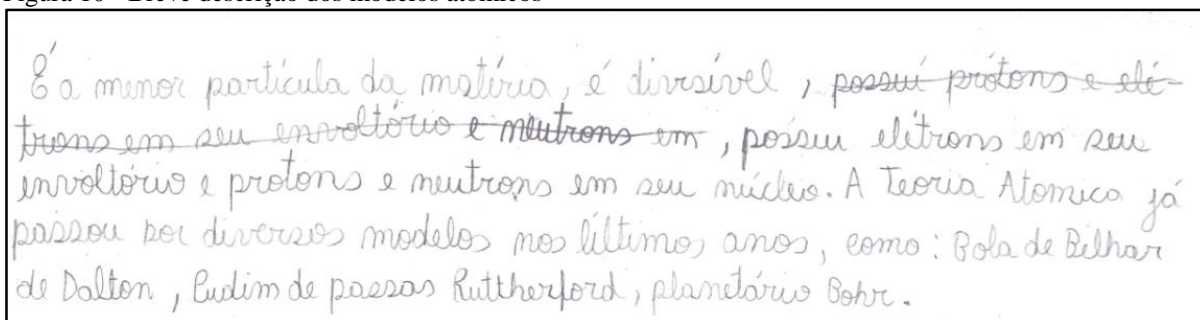 Figura 10 - Breve descrição dos modelos atômicos
É a menor partícula da matéria, é divisível, possuí prótons e elé-
trons em seu envoltório e neutrons em, possuu elétrons em seu
envoltório e protons e neutrons em seu núcleo. A Teoria Atomica já
passou por diversos modelos nos últimos anos, como: Bola de Bilhar
de Dalton, Pudim de passas Ruttherford, planetário Bohr.